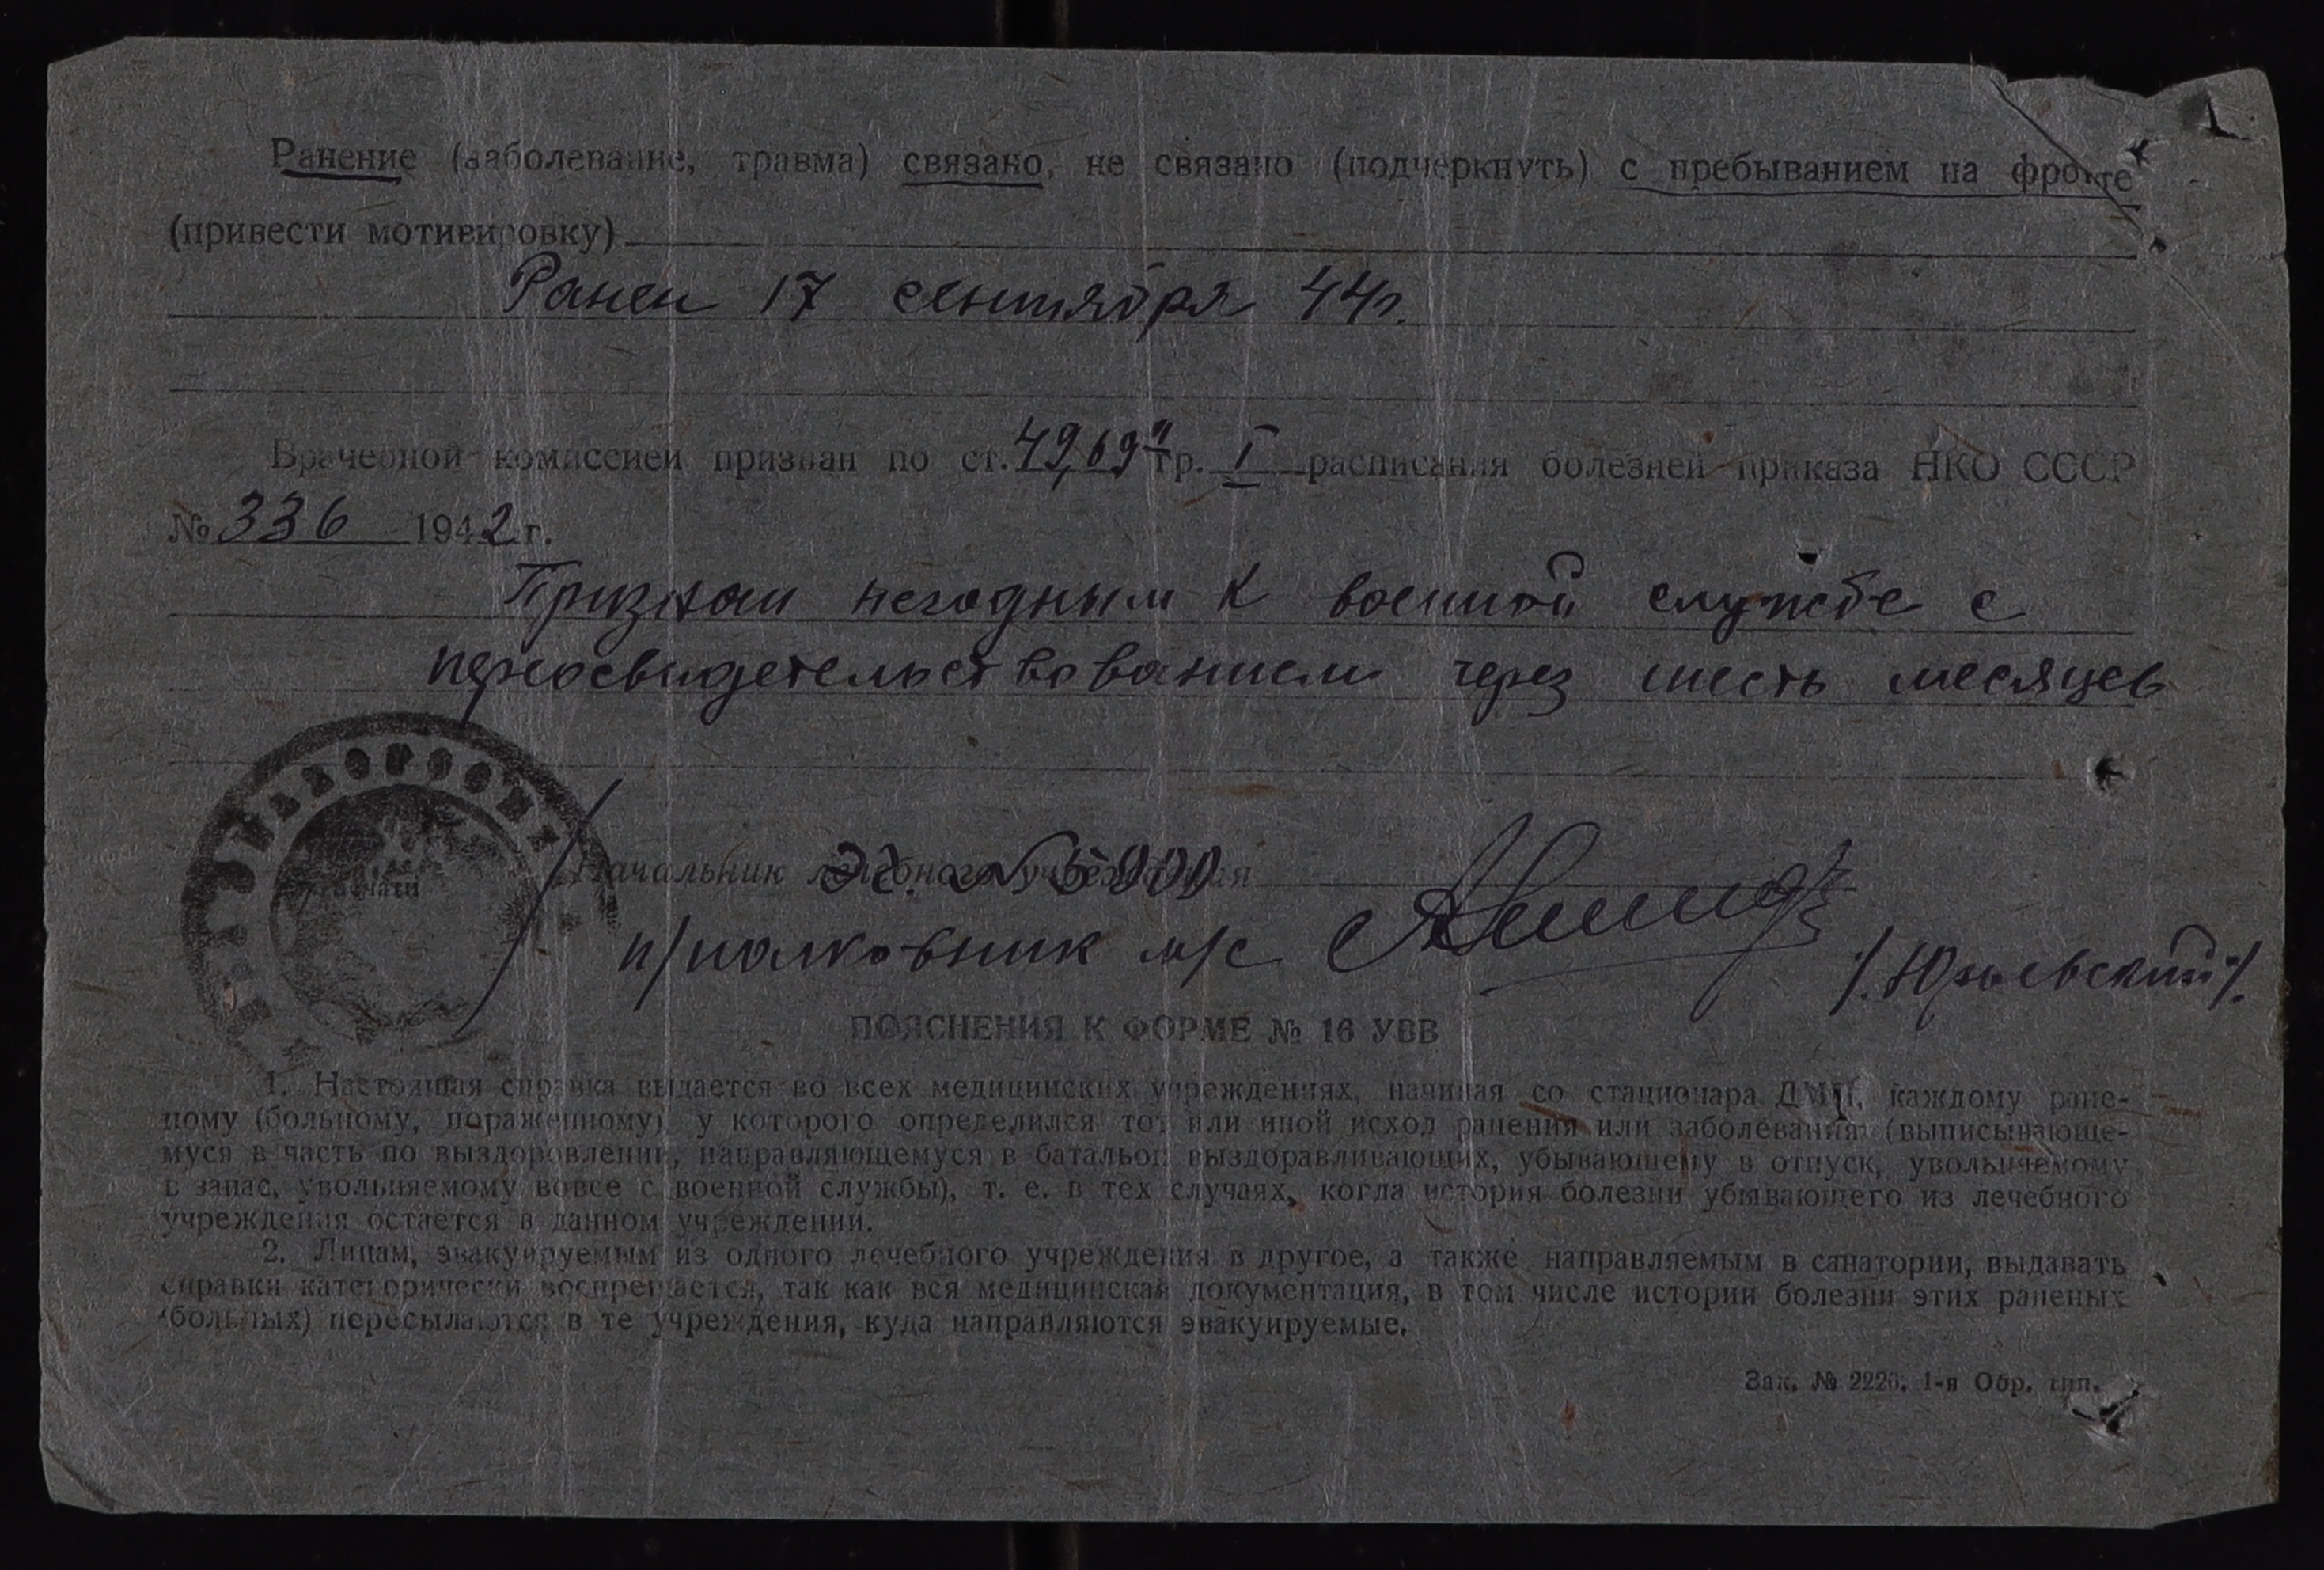 Ранение (заболевание, травма) связано, не связано (подчеркнуть) с пребыванием на фронте
(привести мотивировку)
Ранен 17 сентября 44г.
Врачебной комиссией призван по ст. 49,69 гр. I расписания болезней приказа НКО СССР
№ 336 1942 г.
Признан негодным к военной службе с
переосвидетельствованием через шесть месяцев
Начальник лечебного учреждения
п/полковник м/с
/.Юрьевский/.
ПОЯСНЕНИЯ К ФОРМЕ № 16 УВВ
1. Настоящая справка выдается во всех медицинских учреждениях, начиная со стационара ДМП, каждому ране-
ному (больному, пораженному) у которого определился тот или иной исход ранения или заболевания (выписывающе-
муся в часть по выздоровлении, направляющемуся в батальон выздоравливающих, убывающему в отпуск, увольняемому
в запас, увольняемому вовсе с военной службы), т. е. в тех случаях, когда история болезни убывающего из лечебного
учреждения остается в данном учреждении.
2. Лицам, эвакуируемым из одного лечебного учреждения в другое, а также направляемым в санатории, выдавать
справки категорически воспрещается, так как вся медицинская документация, в том числе истории болезни этих раненых
(больных) пересылаются в те учреждения, куда направляются эвакуируемые.
Зак. № 2226. 1-я Обр. тип.